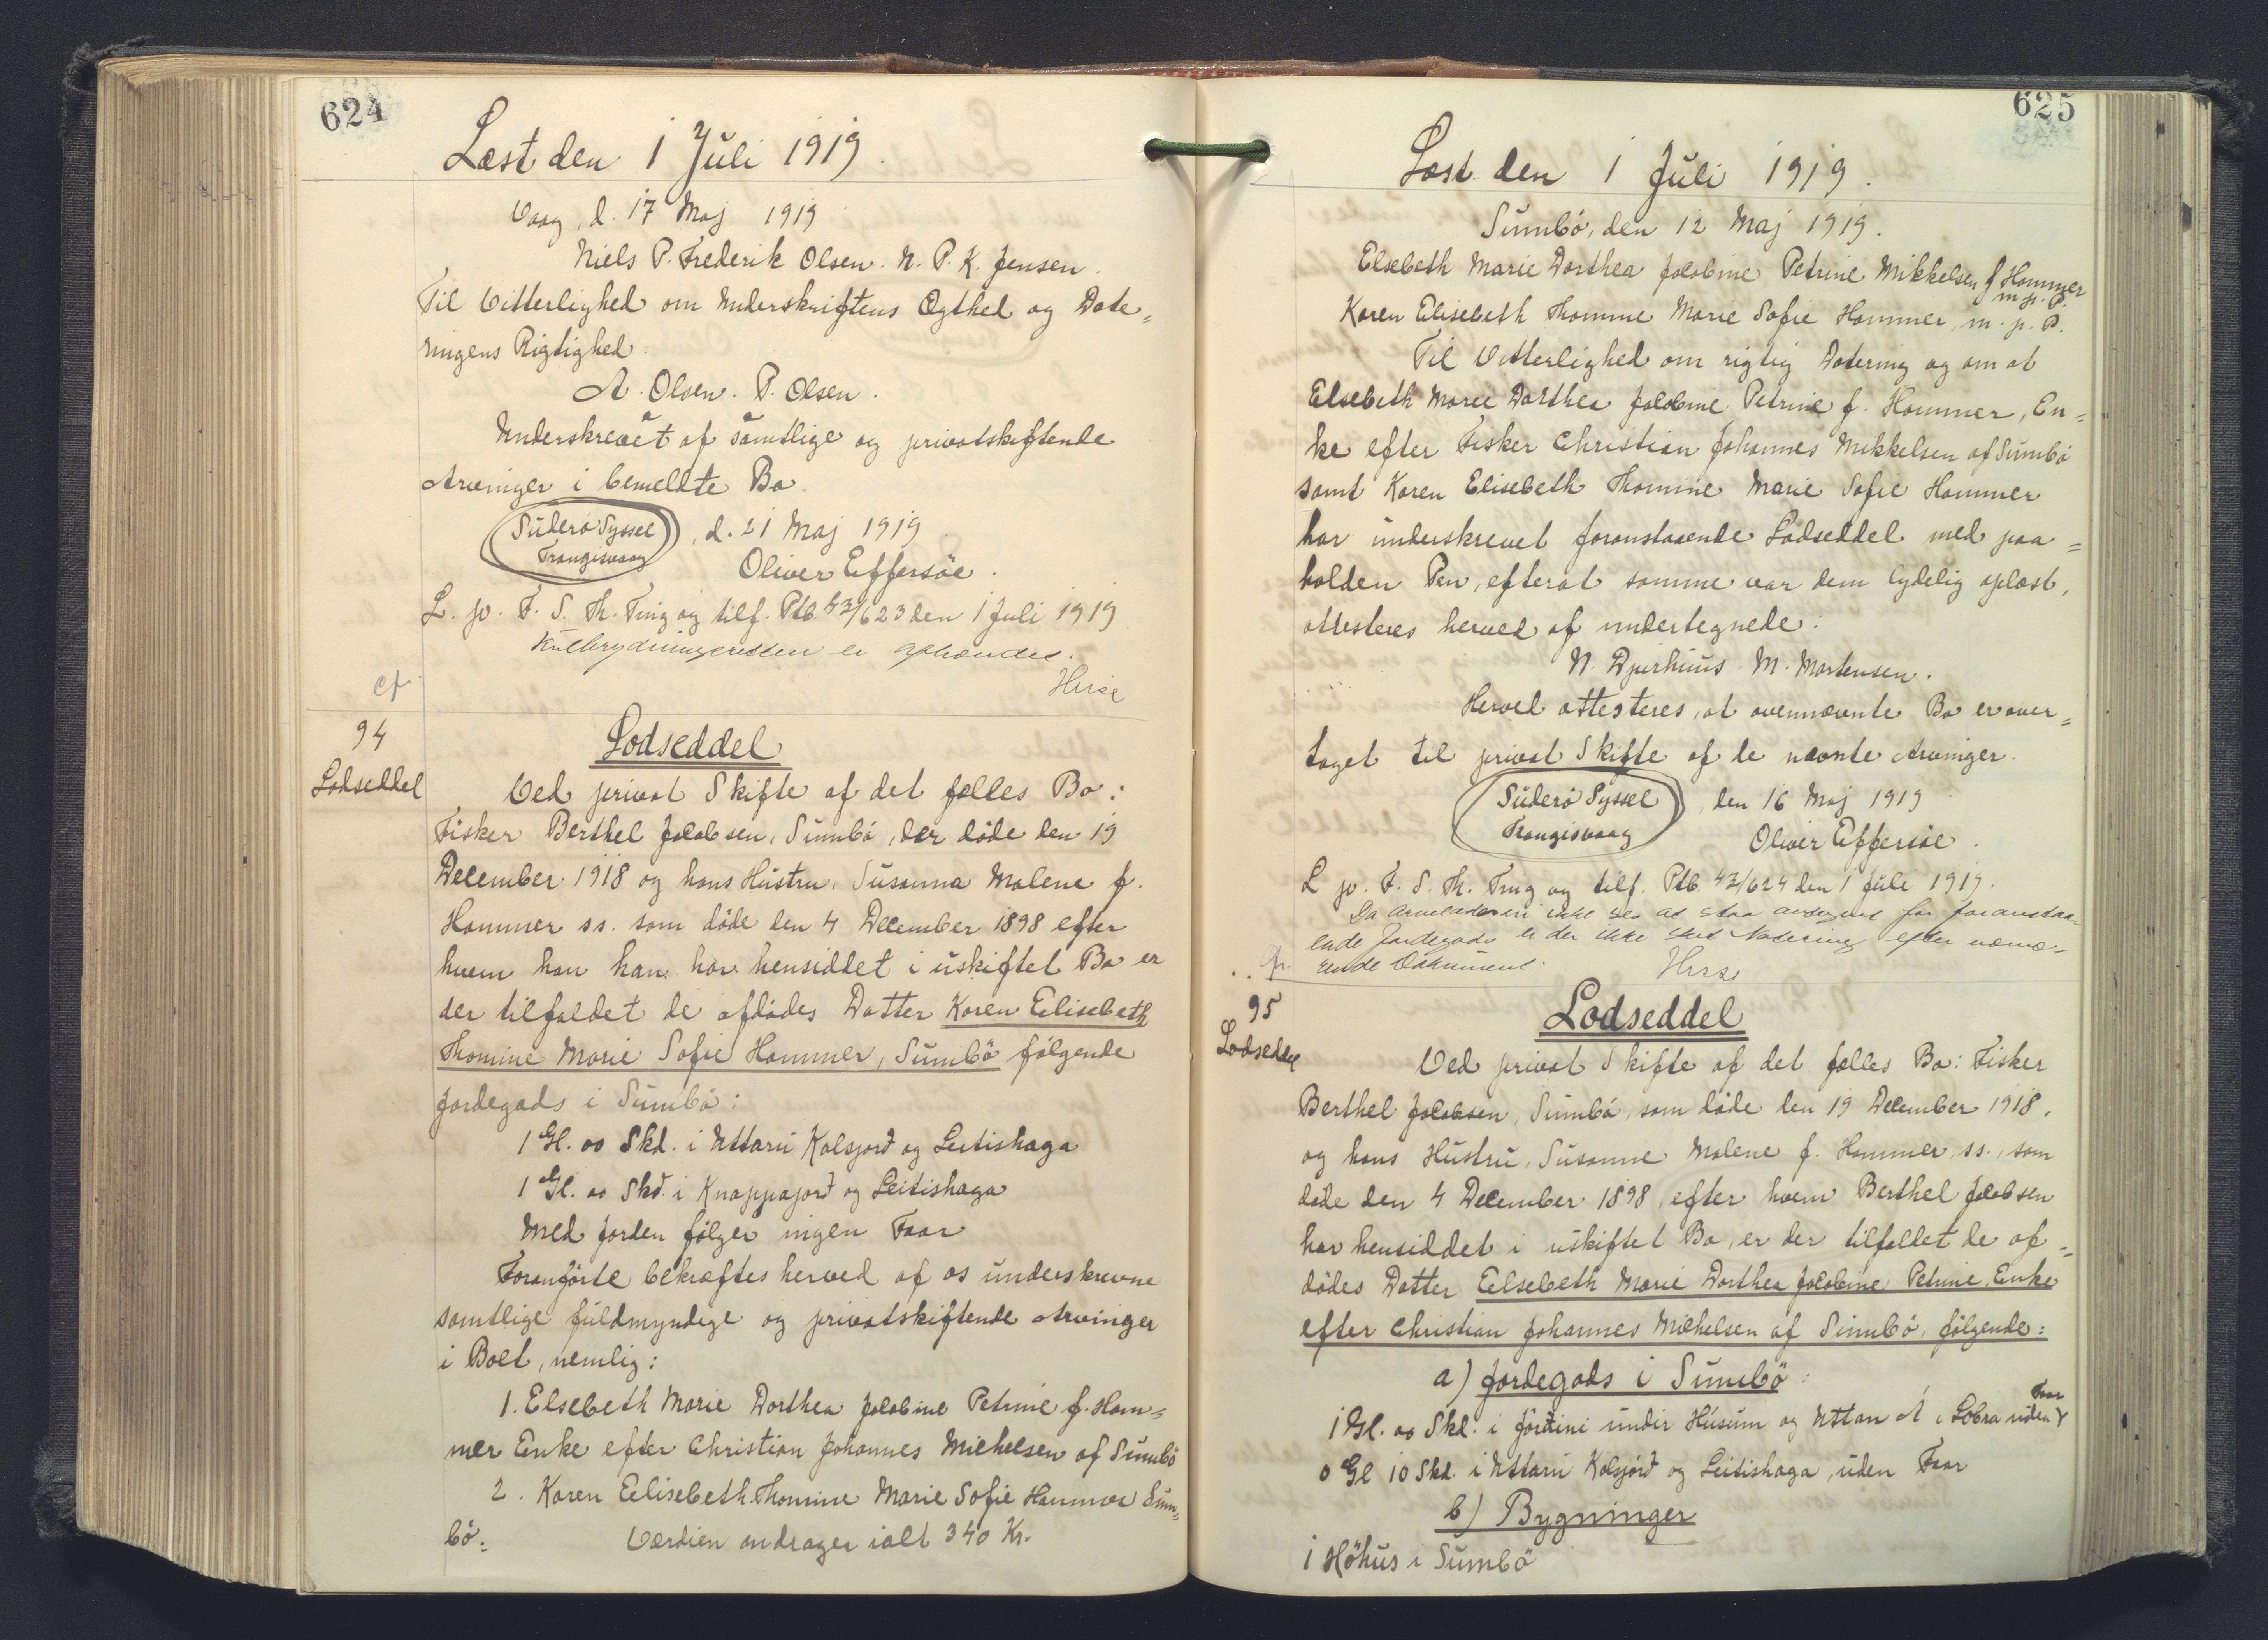 624
Læst den 1 Juli 1919.
Vaag, d. 17 Maj 1919
Niels P. Frederik Olsen. N. P. K. Jensen.
Til Vitterlighed om Underskriftens Ægthed og Date=
ringens Rigtighed.
A. Olsen. P. Olsen.
Underskrevet af samtlige og privatskiftende
Arvinger i bemeldte Bo.
Suderø Syssel
Trangisvaag
, d. 21 Maj 1919
Oliver Effersöe.
L. p. F. S. Th. Ting og tilf. Ptb. 43/623 den 1 Juli 1919
Kulbrydningsretten er afhændet.
Hirse
cf
94
Lodseddel
Lodseddel
Ved privat Skifte af det fælles Bo:
Fisker Berthel Jakobsen, Sumbö, der döde den 19
December 1918 og hans Hustru, Susanna Malene f.
Hammer ss. som döde den 4 December 1898 efter
hvem han han har hensiddet i uskiftet Bo er
der tilfaldet de afdödes Datter Karen Elisebeth
Thomine Marie Sofie Hammer, Sumbö følgende
Jordegods i Sumbö:
1 Gl. oo Skd. i Uttari Kalsjorð og Leitishaga
1 Gl. oo Skd. i Knappajorð og Leitishaga
Med Jorden fölger ingen Faar
Foranförte bekræftes herved af os underskrevne
samtlige fuldmyndige og privatskiftende Arvinger
i Boet, nemlig:
1. Elsebeth Marie Dorthea Jakobine Petrine f. Ham=
mer Enke efter Christian Johannes Michelsen af Sumbö
2. Karen Elisebeth Thomine Marie Sofie Hammer Sum=
bö.
Værdien andrager ialt 340 Kr.
625
Læst den 1 Juli 1919.
Sumbö, den 12 Maj 1919.
Elsebeth Marie Dorthea Jakobine Petrine Mikkelsen f Hammer
m. p. P.
Karen Elisebeth Thomine Marie Sofie Hammer, m. p. P.
Til Vitterlighed om rigtig Datering og om at
Elsebeth Marie Dorthea Jakobine Petrine f. Hammer, En=
ke efter Fisker Christian Johannes Mikkelsen af Sumbö
samt Karen Elisebeth Thomine Marie Sofie Hammer
har underskrevet foranstaaende Lodseddel med paa=
holden Pen, efterat samme var dem lydelig oplæst,
attesteres herved af undertegnede:
N. Djurhuus. M. Mortensen.
Herved attesteres, at ovennævnte Bo er over=
taget til privat Skifte af de nævnte Arvinger.
Suderø Syssel
Trangisvaag
, den 16 Maj 1919
Oliver Effersöe.
L p. F. S. Th. Ting og tilf. Ptb. 43/624 den 1 Juli 1919.
Da Arveladeren ikke ses at staa antegnet for foranstaa-
ende Jordegods er der ikke sket Notering efter nærvæ-
rende Dokument.
Hirse
95
Lodseddel
Lodseddel
Ved privat Skifte af det fælles Bo: Fisker
Berthel Jakobsen, Sumbö, som döde den 19 December 1918,
og hans Hustru, Susanne Malene f. Hammer, ss., som
döde den 4 December 1898, efter hvem Berthel Jakobsen
har hensiddet i uskiftet Bo, er der tilfaldet de af=
dödes Datter Elsebeth Marie Dorthea Jakobine Petrine, Enke
efter Christian Johannes Mikkelsen af Sumbö, fölgende:
a) Jordegods i Sumbö:
1 Gl. oo Skd. i Jörðini undir Húsum og Uttan Á i Lobra uden Faar
0 Gl 10 Skd. i Uttari Kalsjorð og Leitishaga, uden Faar
b) Bygninger
1 Höhus i Sumbö